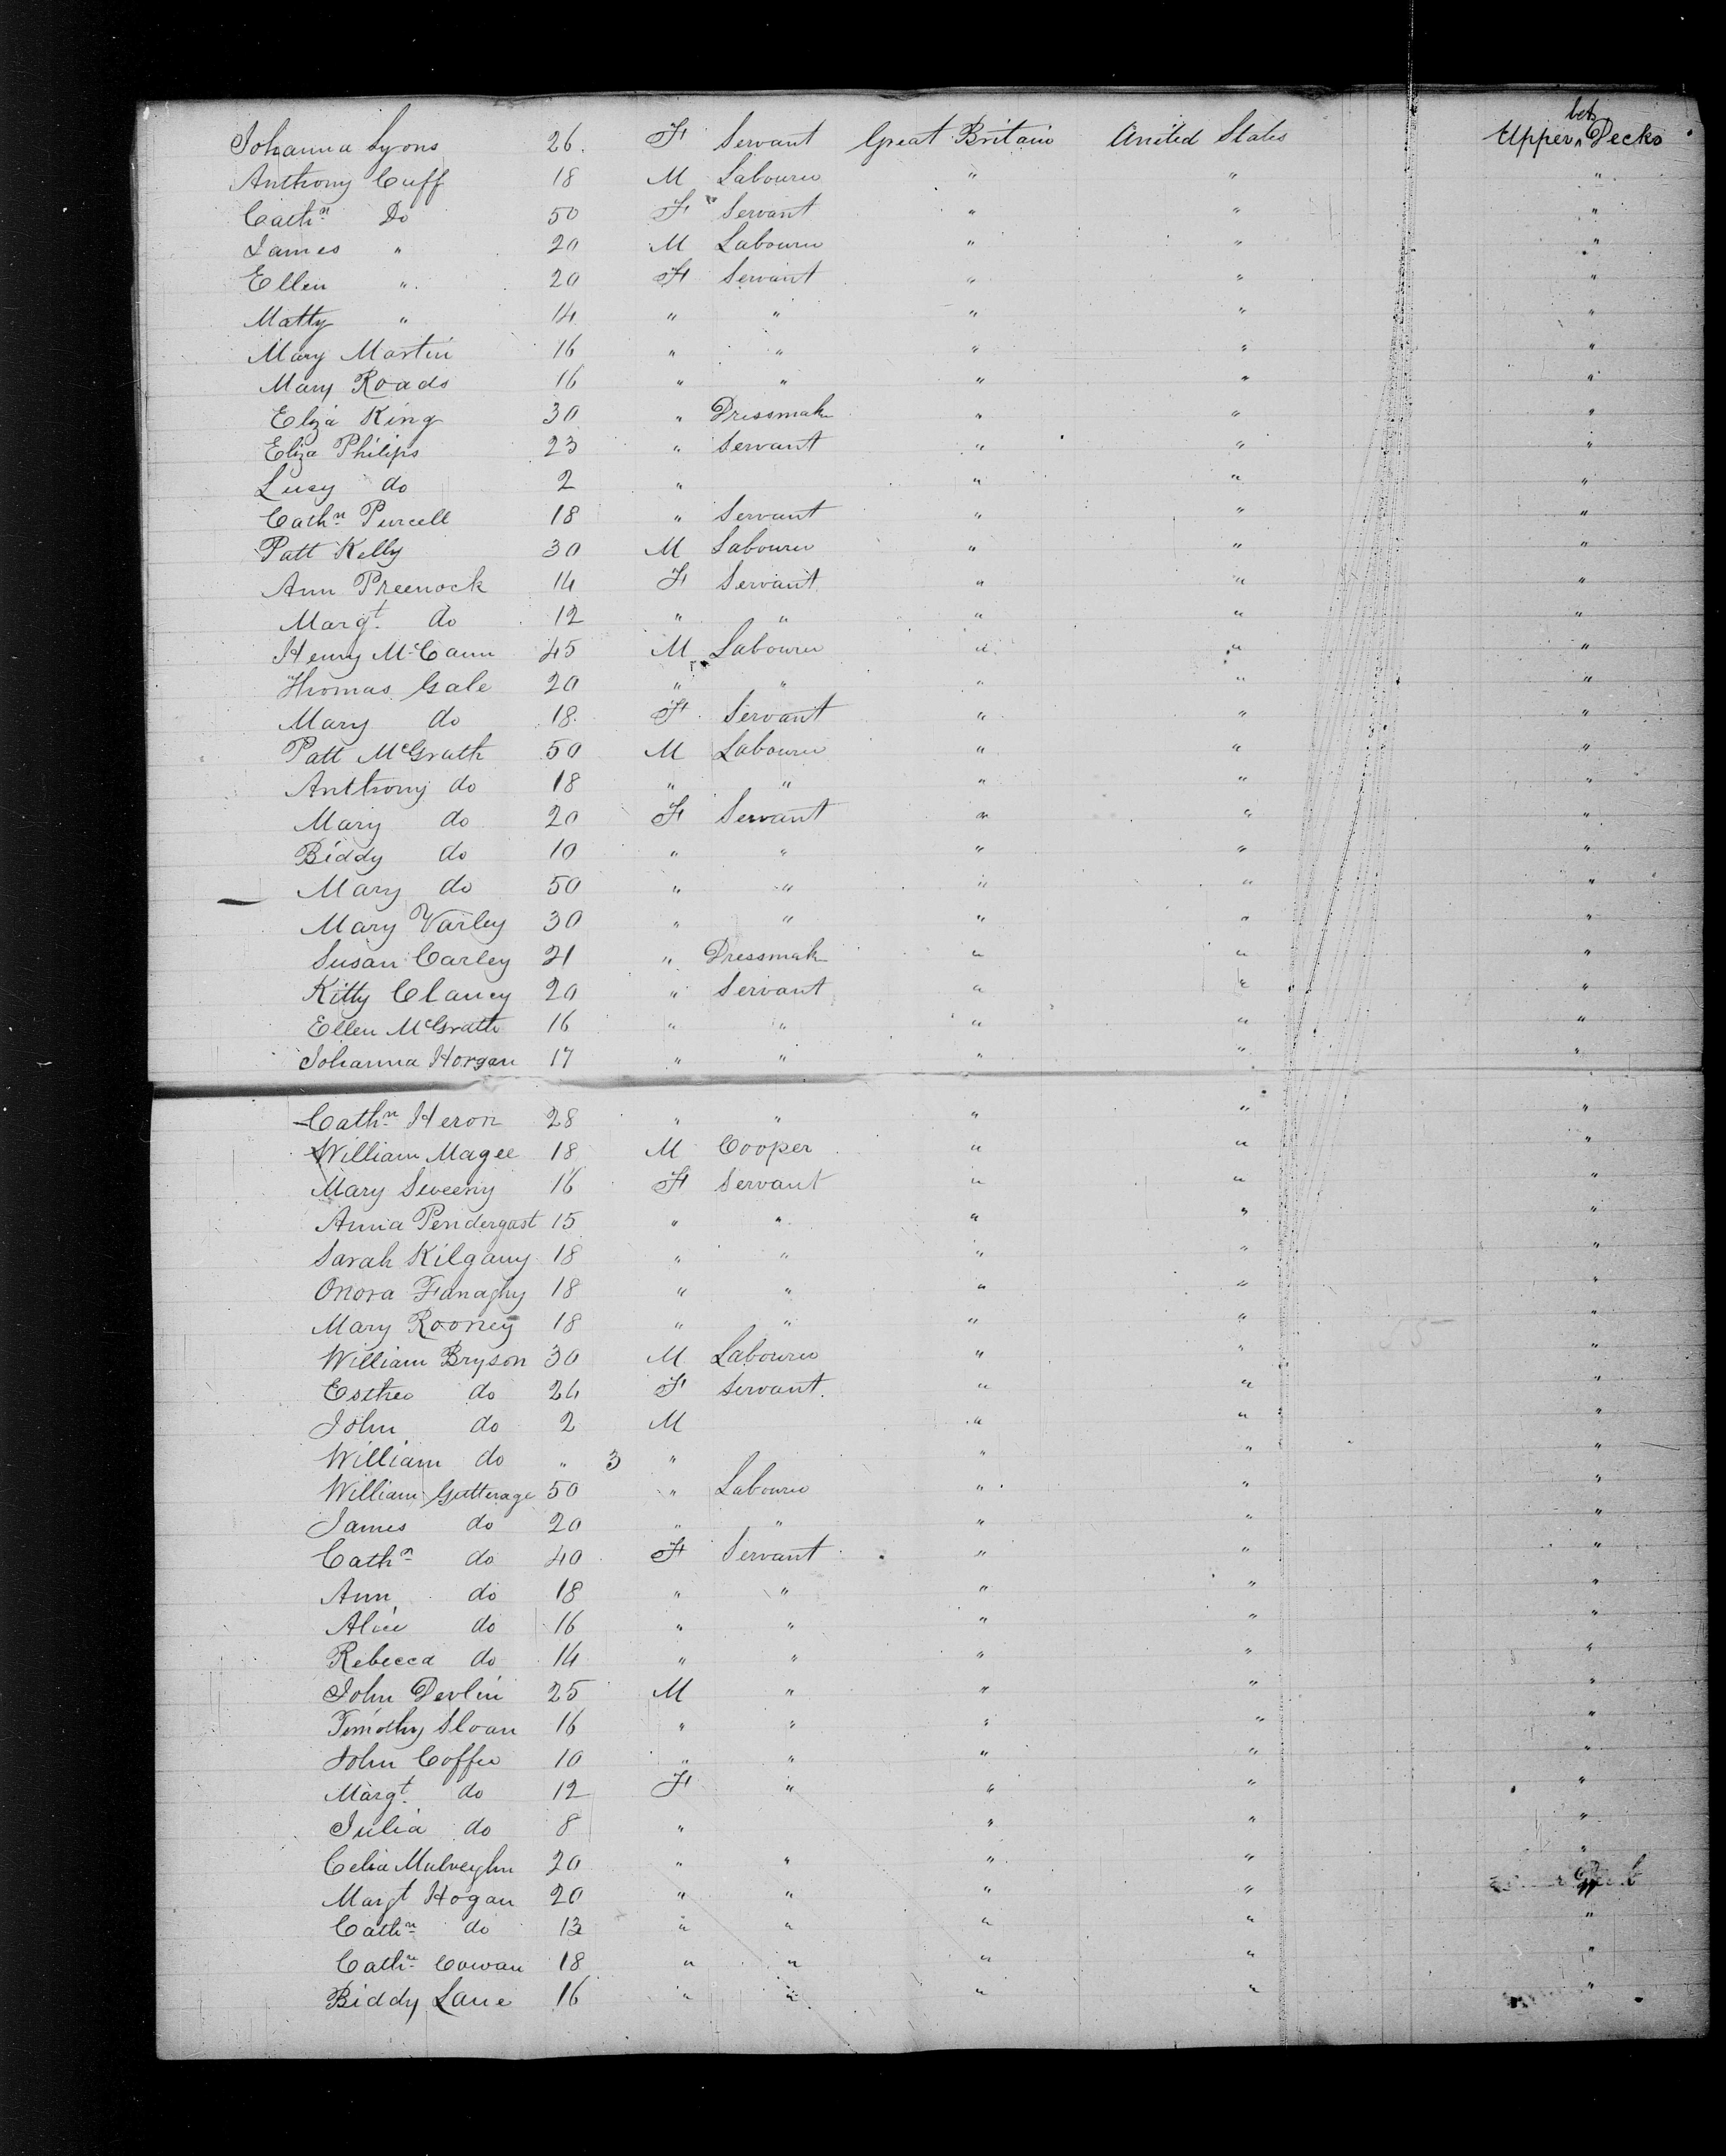 Johanna Lyons 26. F Servant Great Britain United States Upper bet^n Decks
Anthony Cuff 18 M Labourer " " "
Cath^n Do 50 F Servant " " "
James " 20 M Labourer " " "
Ellen " 20 F Servant " " "
Matty " 14 " " " " "
Mary Martin 16 " " " " "
Mary Roads 16 " " " " "
Eliza King 30 " Dressmak " " "
Eliza Philips 23 " Servant " " "
Lucy do 2 " " " "
Cath^n Purcell 18 " Servant " " "
Patt Kelly 30 M Labourer " " "
Ann Preenock 14 F Servant " " "
Marg^t do 12 " " " " "
Henry McCann 45 M Labourer " " "
Thomas Gale 20 " " " " "
Mary do 18 F Servant " " "
Patt McGrath 50 M Labourer " " "
Anthony do 18 " " " " "
Mary do 20 F Servant " " "
Biddy do 10 " " " " "
Mary do 50 " " " " "
Mary Varley 30 " " " " "
Susan Carley 21 " Dressmak " " "
Kitty Clancy 20 " Servant " " "
Ellen McGrath 16 " " " " "
Johanna Horgan 17 " " " " "
Cath^n Heron 28 " " " " "
William Magee 18 M Cooper " " "
Mary Sweeny 16 F Servant " " "
Anna Pendergast 15 " " " " "
Sarah Kilgany 18 " " " " "
Onora Fanaghy 18 " " " " "
Mary Rooney 18 " " " " "
William Bryson 30 M Labourer " " "
Esther do 24 F Servant " " "
John do 2 M " " "
William do " 3 " " " "
William Gutterage 50 " Labourer " " "
James do 20 " " " " "
Cath^n do 40 F Servant " " "
Ann do 18 " " " " "
Alice do 16 " " " " "
Rebecca do 14 " " " " "
John Devlin 25 M " " " "
Timothy Sloan 16 " " " " "
John Coffee 10 " " " " "
Marg^t do 12 F " " " "
Julia do 8 " " " "
Celia Mulveyhn 20 " " " " "
Marg^t Hogan 20 " " " " "
Cath^n do 13 " " " " "
Cath^n Cowan 18 " " " " "
Biddy Lane 16 " " " " "